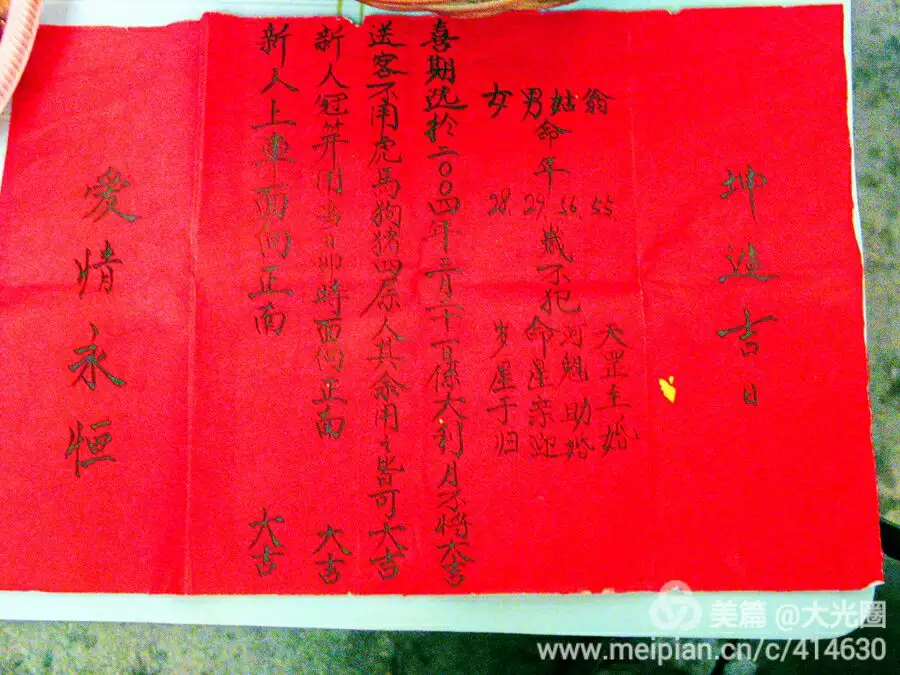 坤造吉日
翁 55 天罡主婚
姑 56 河魁助婚
男命年 29 岁不犯命星亲迎
女 28 岁星于归
喜期选於二〇〇四年三月二十一日係大利月不將大吉
送客不用虎馬狗猪四属人其余用之皆可大吉
新人冠笄用当日卯時面向正南 大吉
新人上車面向正南 大吉
愛情永恒
美篇 @大光圈
www.meipian.cn/c/414630